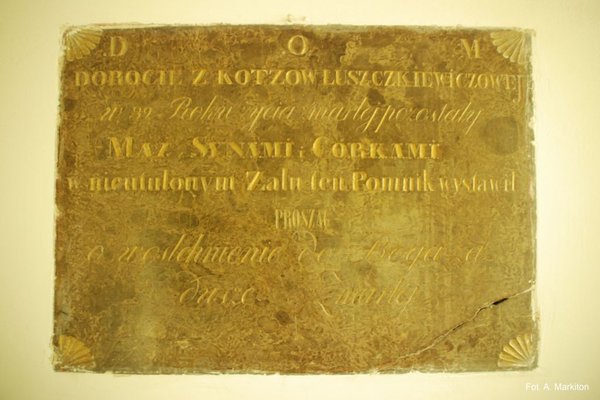 D O M
DOROCIE Z KOTZOW ŁUSZCZKIEWICZOWEJ
w 39 Rokże życia zmarłej pozostały
MĄŻ SYNAMI i CÓRKAMI
w nieutulonym Żalu ten Pomnik wystawił
PROSZĄC
o westchnienie do Boga za
duszę Zmarłej
Fot. A. Markiton